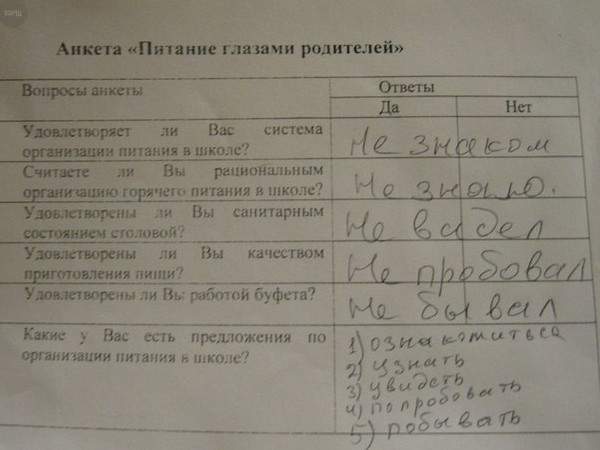 Анкета «Питание глазами родителей»
Вопросы анкеты
Ответы
Да Нет
Удовлетворяет ли Вас система
организации питания в школе?
Не знаком
Считаете ли Вы рациональным
организацию горячего питания в школе?
Не знаю.
Удовлетворены ли Вы санитарным
состоянием столовой?
Не видел
Удовлетворены ли Вы качеством
приготовления пищи?
Не пробовал
Удовлетворены ли Вы работой буфета?
Не бывал
Какие у Вас есть предложения по
организации питания в школе?
1) ознакомиться
2) узнать
3) увидеть
4) попробовать
5) побывать